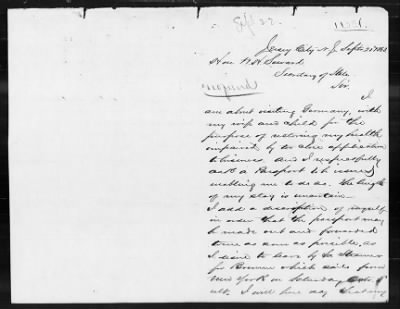 Jersey City N.J. Septr
Hon W H Seward
Secretary of State
Sir.
I
am about visiting Germany, with
my wife and child for the
purpose of restoring my health
impaired by too close application
to business and I respectfully
ask a Passport to be issued
enabling me to do so. The length
of my stay is uncertain
I add a description of myself
in order that the passport may
be made out and forwarded
to me as soon as possible, as
I desire to leave by the Steamer
for Bremen which sails from
New York on Saturday
I will